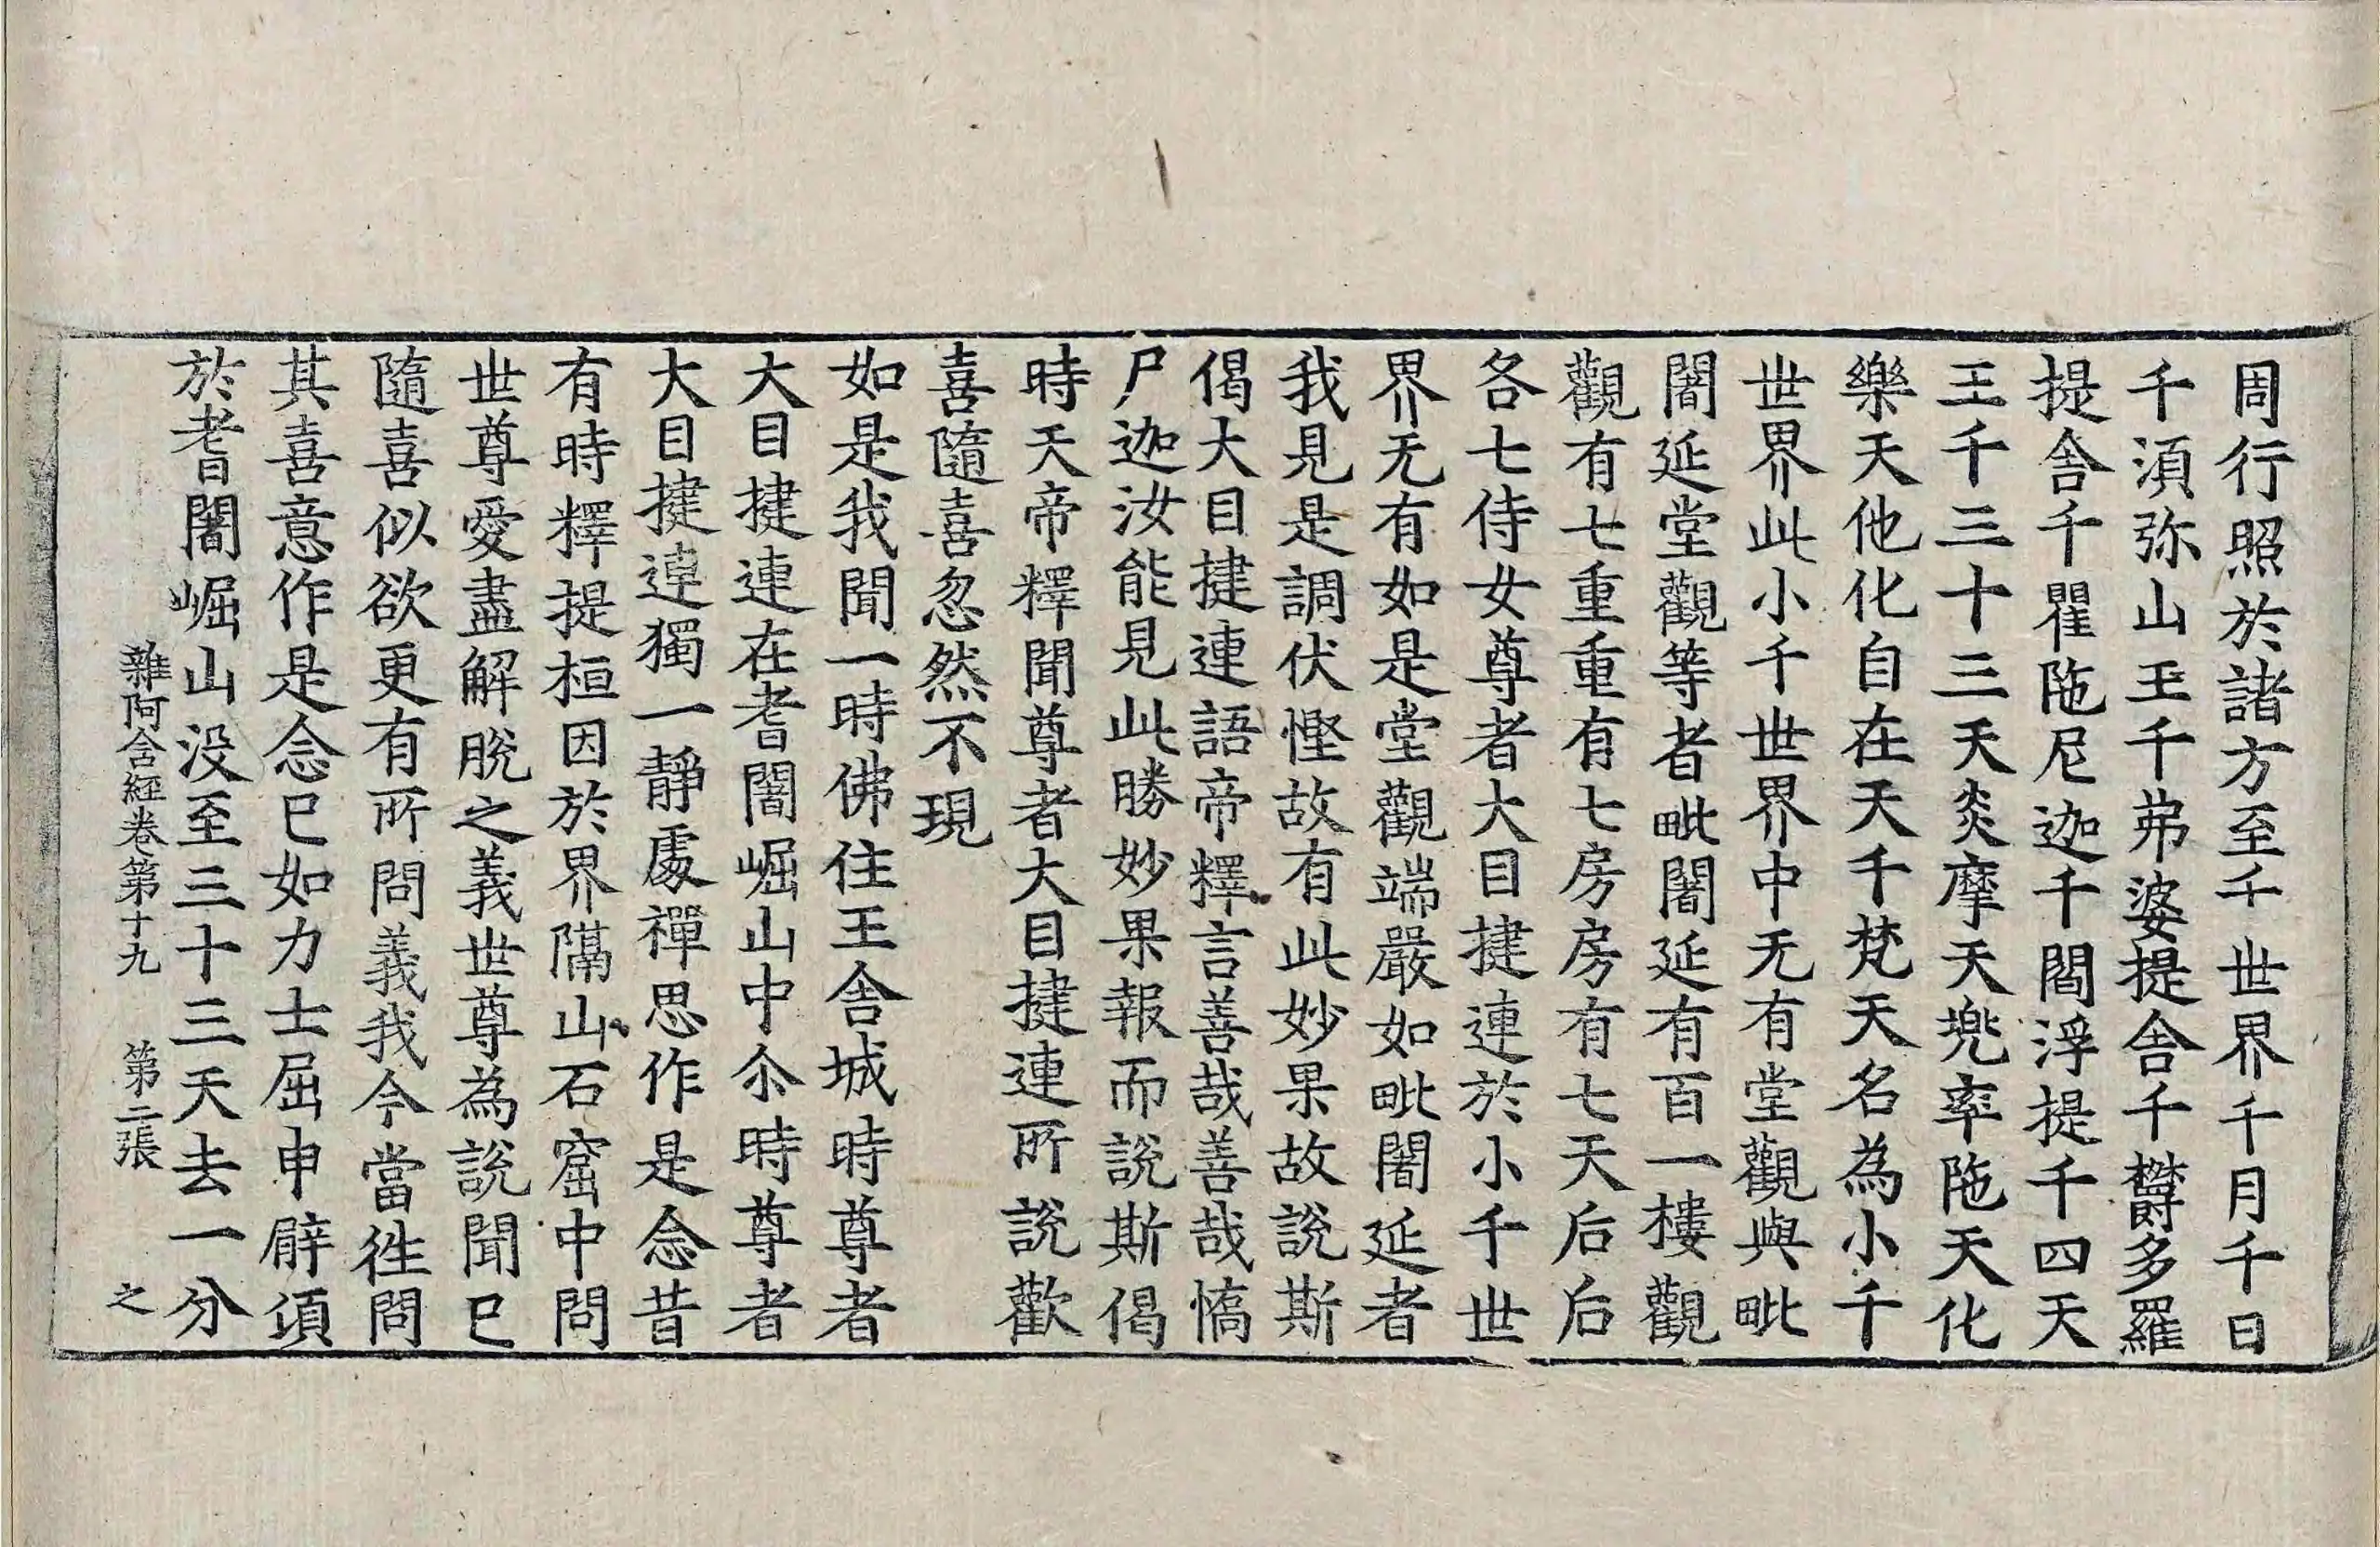 周行照於諸方至千世界千月千日
千湏弥山王千弗婆提舎千欝多羅
提舎千瞿陁尼迦千閻浮提千四天
王千三十三天炎摩天兠率陁天化
樂天他化自在天千梵天名為小千
世界此小千世界中无有堂觀與毗
闍延堂觀等者毗闍延有百一樓觀
觀有七重重有七房房有七天后后
各七侍女尊者大目揵連於小千世
界无有如是堂觀端嚴如毗闍延者
我見是調伏慳故有此妙果故說斯
偈大目揵連語帝釋言善哉善哉憍
尸迦汝能見此勝妙果報而說斯偈
時天帝釋聞尊者大目揵連所說歡
喜隨喜忽然不現
如是我聞一時佛住王舎城時尊者
大目揵連在耆闍崛山中尒時尊者
大目揵連獨一靜處禪思作是念昔
有時釋提桓因於界隔山石窟中問
世尊愛盡解脫之義世尊為說聞已
隨喜似欲更有所問義我今當徃問
其喜意作是念已如力士屈申臂頃
於耆闍崛山没至三十三天去一分
雜阿含經卷第十九 第二張 之